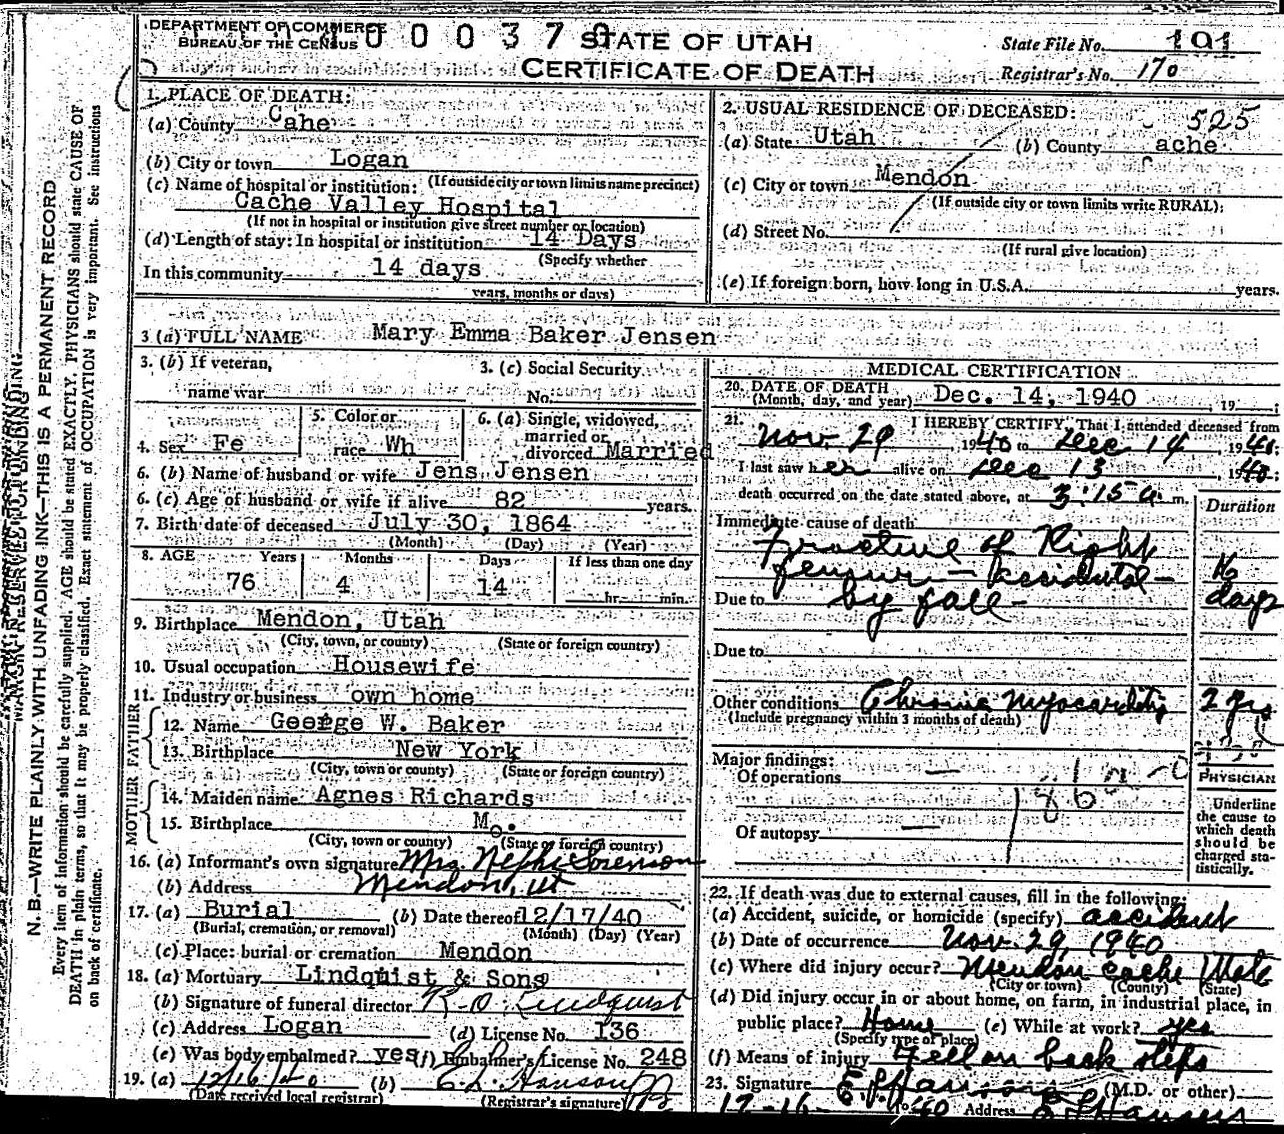 DEPARTMENT OF COMMERCE
BUREAU OF THE CENSUS
STATE OF UTAH
CERTIFICATE OF DEATH
State File No. 191
Registrar's No. 170
1. PLACE OF DEATH:
(a) County Cahe
(b) City or town Logan
(If outside city or town limits name precinct)
(c) Name of hospital or institution:
Cache Valley Hospital
(If not in hospital or institution give street number or location)
(d) Length of stay: In hospital or institution 14 Days
(Specify whether
In this community 14 days
years, months or days)
2. USUAL RESIDENCE OF DECEASED: 525
(a) State Utah (b) County Cache
(c) City or town Mendon
(If outside city or town limits write RURAL)
(d) Street No.
(If rural give location)
(e) If foreign born, how long in U.S.A. years.
3 (a) FULL NAME Mary Emma Baker Jensen
3. (b) If veteran, name war
3. (c) Social Security No.
4. Sex Fe
5. Color or race Wh
6. (a) Single, widowed, married or divorced Married
6. (b) Name of husband or wife Jens Jensen
6. (c) Age of husband or wife if alive 82 years.
7. Birth date of deceased July 30, 1864
(Month) (Day) (Year)
8. AGE Years Months Days If less than one day
76 4 14 hr. min.
9. Birthplace Mendon, Utah
(City, town, or county) (State or foreign country)
10. Usual occupation Housewife
11. Industry or business own home
FATHER
12. Name George W. Baker
13. Birthplace New York
(City, town or county) (State or foreign country)
MOTHER
14. Maiden name Agnes Richards
15. Birthplace Mo.
(City, town or county) (State or foreign country)
16. (a) Informant's own signature Mrs Nephi Sorenson
(b) Address Mendon, Ut
17. (a) Burial (b) Date thereof 12/17/40
(Burial, cremation, or removal) (Month) (Day) (Year)
(c) Place: burial or cremation Mendon
18. (a) Mortuary Lindquist & Sons
(b) Signature of funeral director R. O. Lindquist
(c) Address Logan (d) License No. 136
(e) Was body embalmed? yes (f) Embalmer's License No. 248
19. (a) 12/16/40 (b) E. L. Hanson
(Date received local registrar) (Registrar's signature)
MEDICAL CERTIFICATION
20. DATE OF DEATH
(Month, day, and year) Dec. 14, 1940, 19
21. I HEREBY CERTIFY, That I attended deceased from
Nov 29 1940 to Dec 14 1940;
I last saw her alive on Dec 13 1940;
death occurred on the date stated above, at 3:15 a. m.
Duration
Immediate cause of death
Fracture of Right
femur - accidental - 16
Due to by fall - days
Due to
Other conditions Chronic Myocarditis 2 yrs
(Include pregnancy within 3 months of death)
Major findings:
Of operations
186
Of autopsy
PHYSICIAN
Underline
the cause to
which death
should be
charged sta-
tistically.
22. If death was due to external causes, fill in the following:
(a) Accident, suicide, or homicide (specify) accident
(b) Date of occurrence Nov. 29, 1940
(c) Where did injury occur? Mendon Cache Utah
(City or town) (County) (State)
(d) Did injury occur in or about home, on farm, in industrial place, in
public place? Home (e) While at work? yes
(Specify type of place)
(f) Means of injury Fell on back steps
23. Signature (M.D. or other)
12-16-1940 Address
N. B.—WRITE PLAINLY WITH UNFADING INK—THIS IS A PERMANENT RECORD
Every item of information should be carefully supplied. AGE should be stated EXACTLY. PHYSICIANS should state CAUSE OF
DEATH in plain terms, so that it may be properly classified. Exact statement of OCCUPATION is very important. See instructions
on back of certificate.
MARGIN RESERVED FOR BINDING